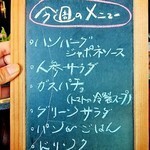 今週のメニュー
・ハンバーグ
ジャポネソース
・人参サラダ
・ガスパチョ
(トマトの冷製スープ)
・グリーンサラダ
・パン or ごはん
・ドリンク